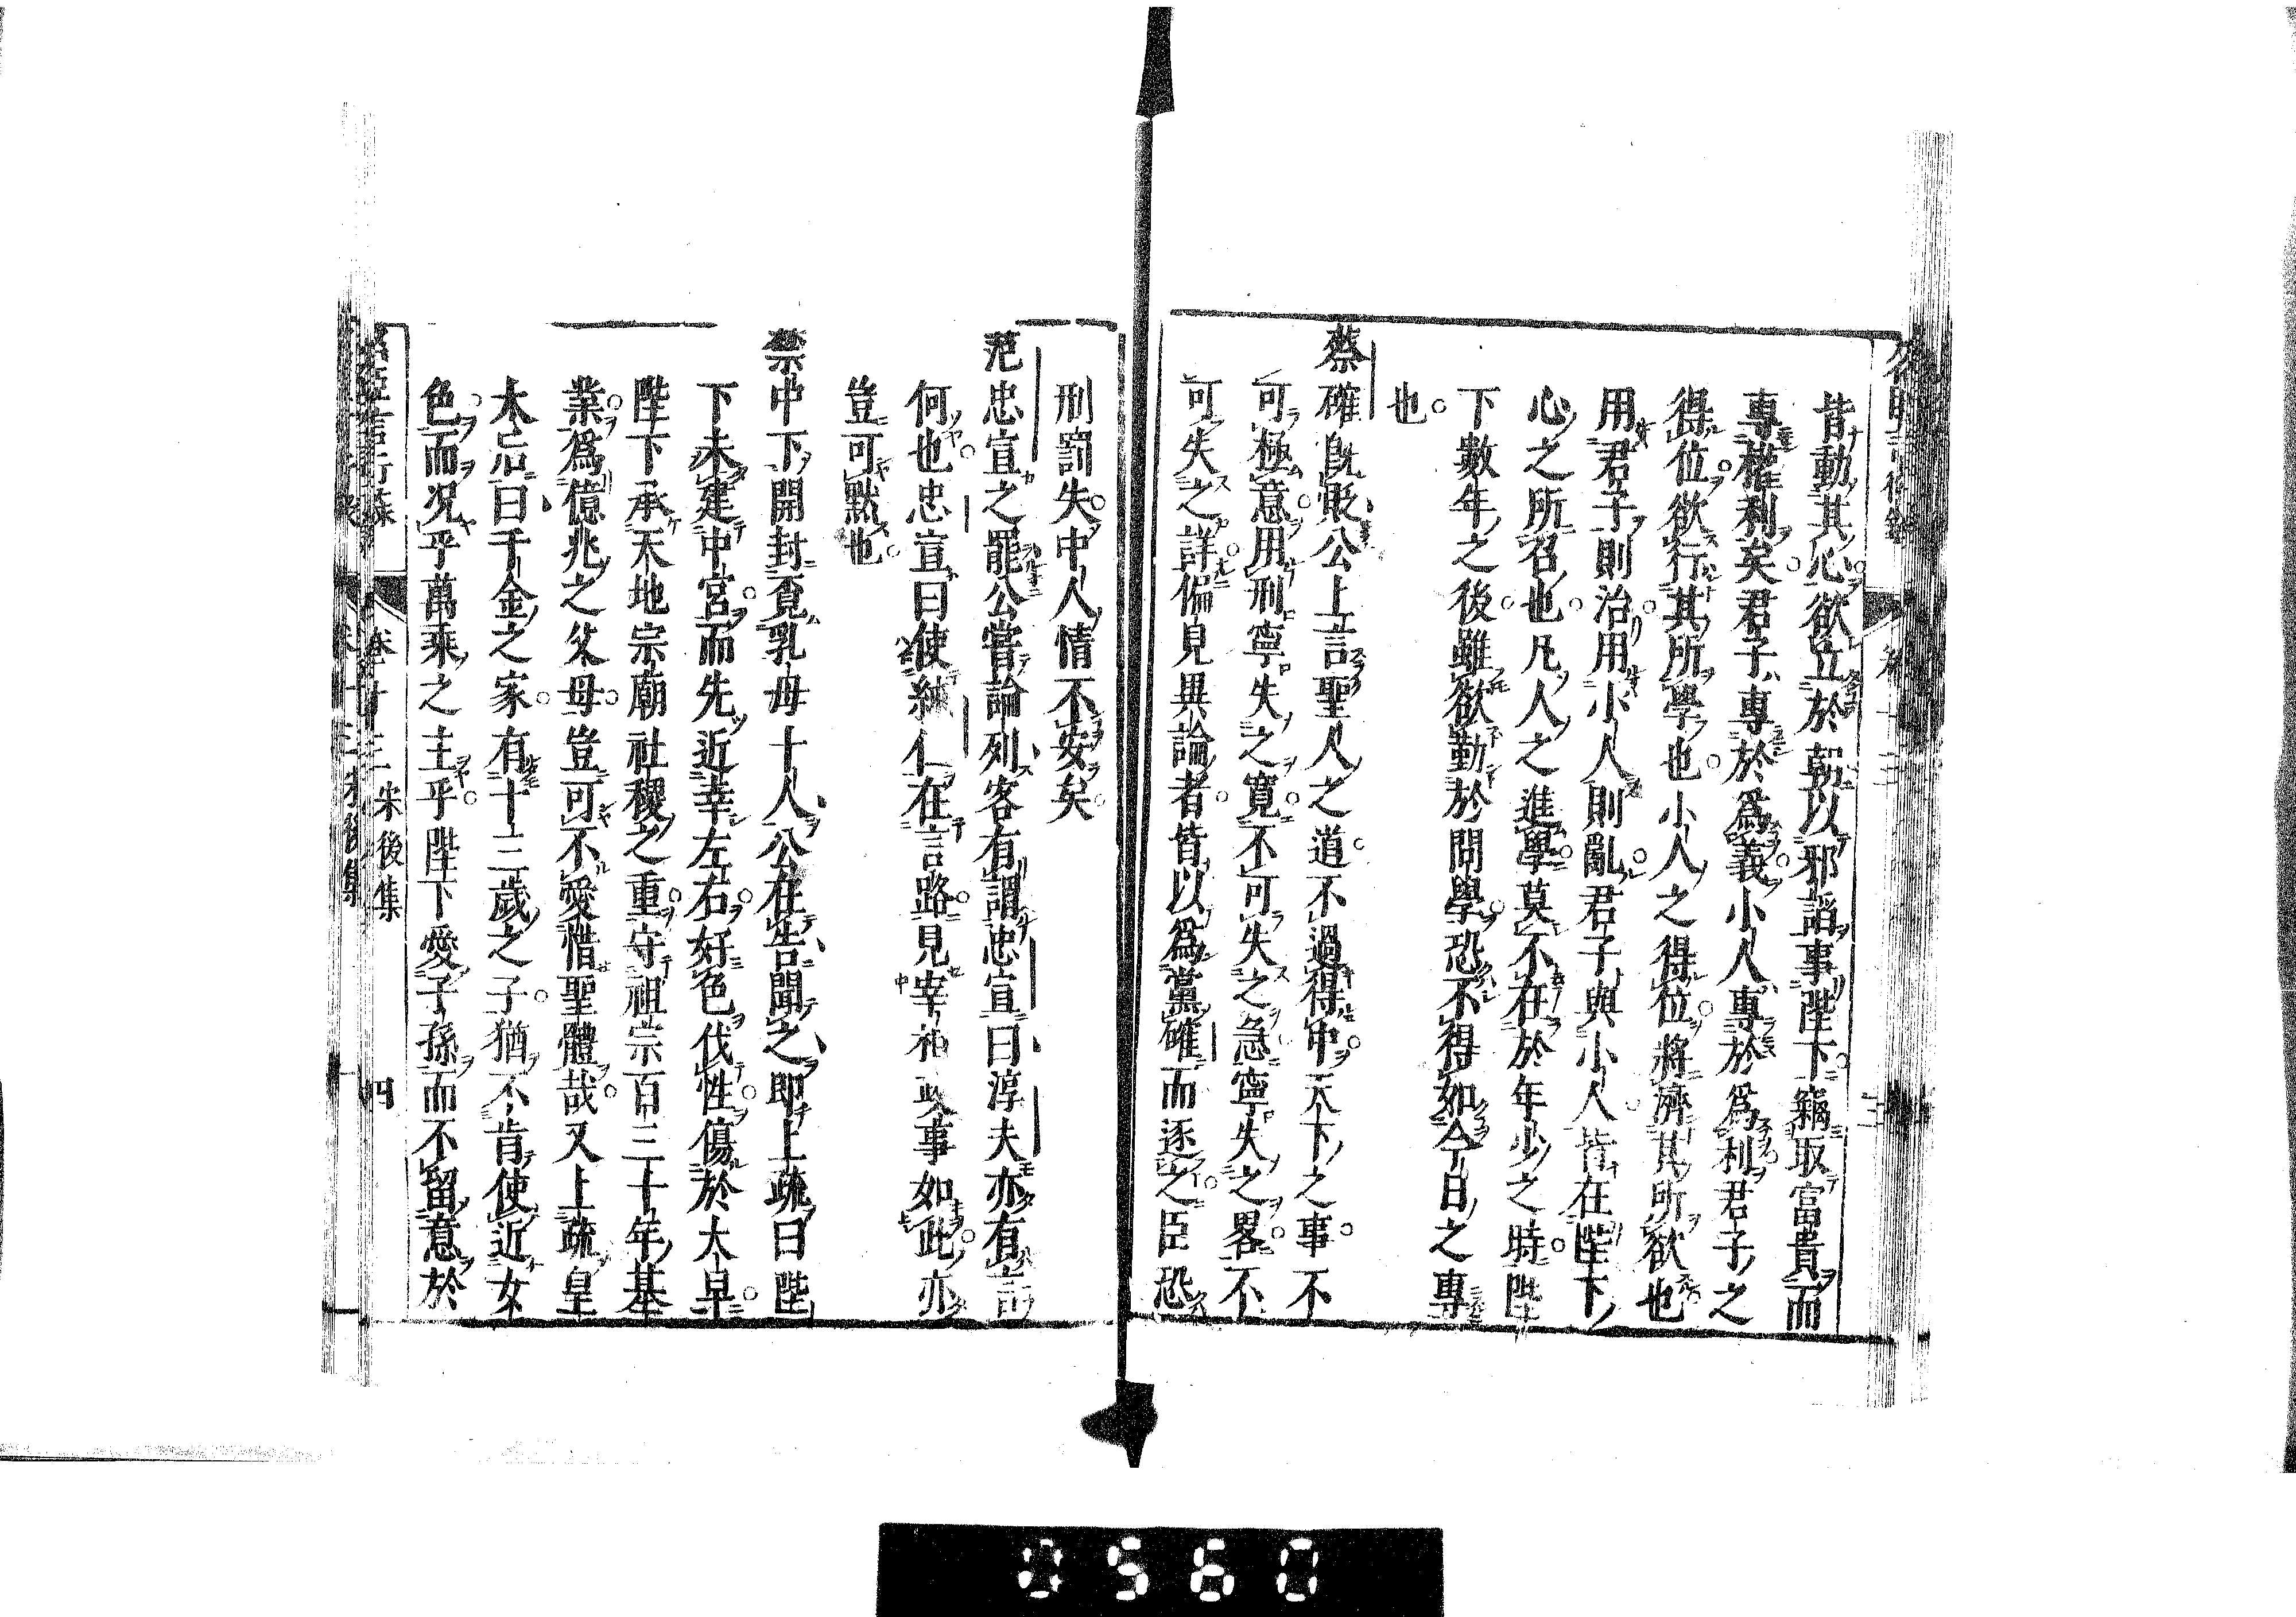 皆動其心欲立於朝以邪諂事陛下竊取富貴而
專權利矣君子專於爲義小人專於爲利君子之
得位欲行其所學也小人之得位將濟其所欲也
用君子則治用小人則亂君子與小人皆在陛下
心之所召也凡人之進學莫不在於年少之時陛
下數年之後雖欲勤於問學恐不得如今日之專
也
蔡確既貶公上言聖人之道不過得中天下之事不
可極意用刑寧失之寬不可失之急寧失之畧不
可失之詳偏見異論者皆以爲黨確而逐之臣恐
刑罰失中人情不安矣
范忠宣之罷公嘗論列客有謂忠宣曰淳夫亦有言
何也忠宣曰使純仁在言路見宰相政事如此亦
豈可默也
禁中下開封覔乳母十人公在告聞之即上疏曰陛
下未建中宮而先近幸左右好色伐性傷於太早
陛下承天地宗廟社稷之重守祖宗百三十年基
業爲億兆之父母豈可不愛惜聖體哉又上疏皇
太后曰千金之家有十三歲之子猶不肯使近女
色而况乎萬乘之主乎陛下愛子孫而不留意於
名臣言行錄 卷十三 宋後集 四
0560